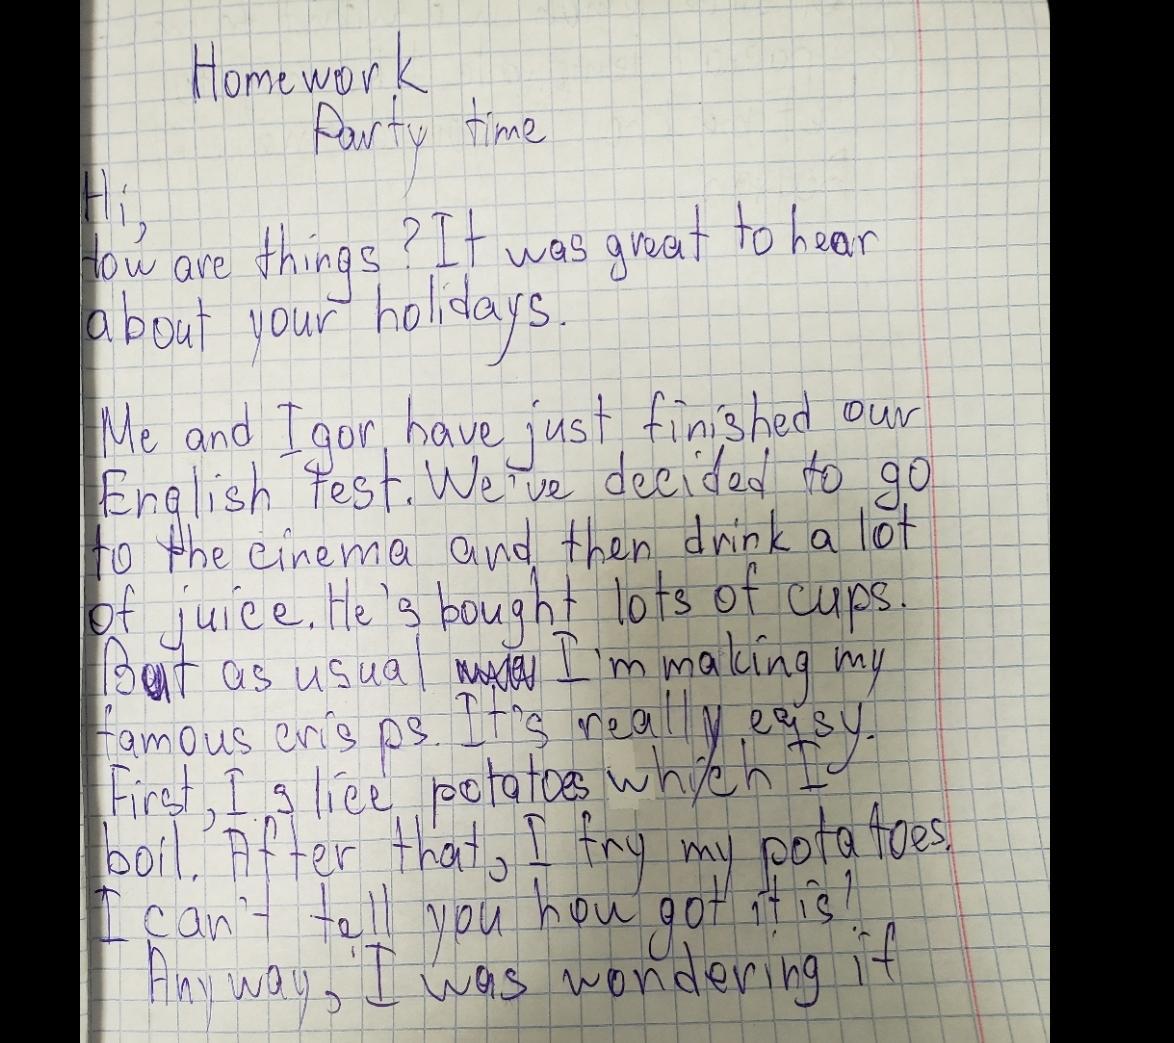 Homework
Party time
Hi,
How are things? It was great to hear
about your holidays.
Me and Igor have just finished our
English test. We've decided to go
to the cinema and then drink a lot
of juice. He's bought lots of cups.
But as usual I'm making my
famous crisps. It's really easy.
First, I slice potatoes which I
boil. After that, I fry my potatoes.
I can't tell you how got it is!
Anyway, I was wondering if